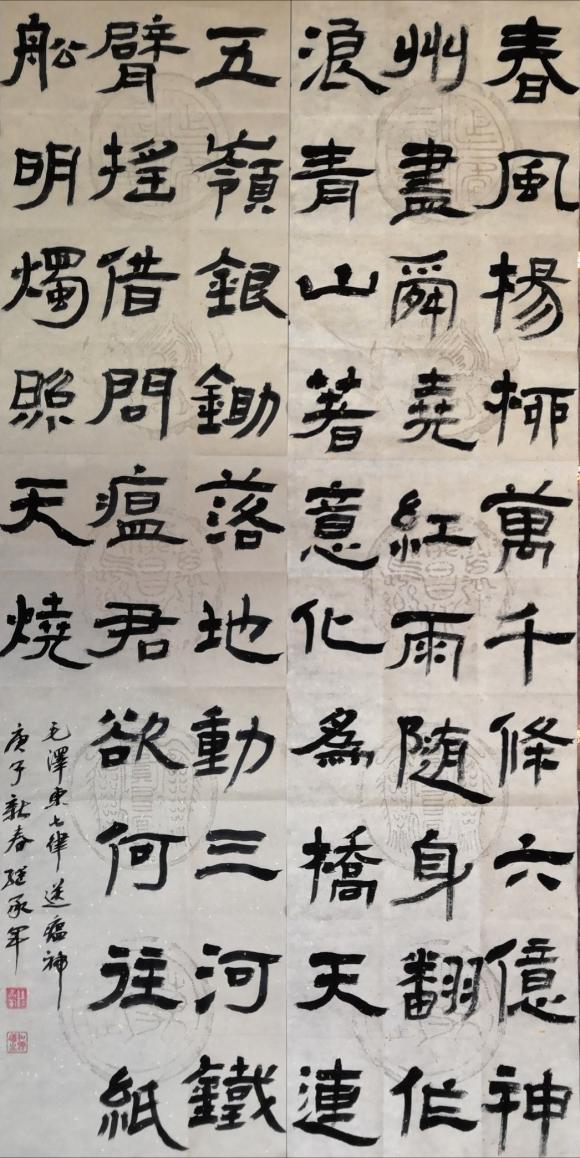 春風楊柳萬千條六億神
州盡舜堯紅雨随身翻作
浪青山著意化為橋天連
五嶺銀鋤落地動三河鐵
臂搖借問瘟君欲何往紙
舩明燭照天燒
毛澤東七律送瘟神
庚子新春